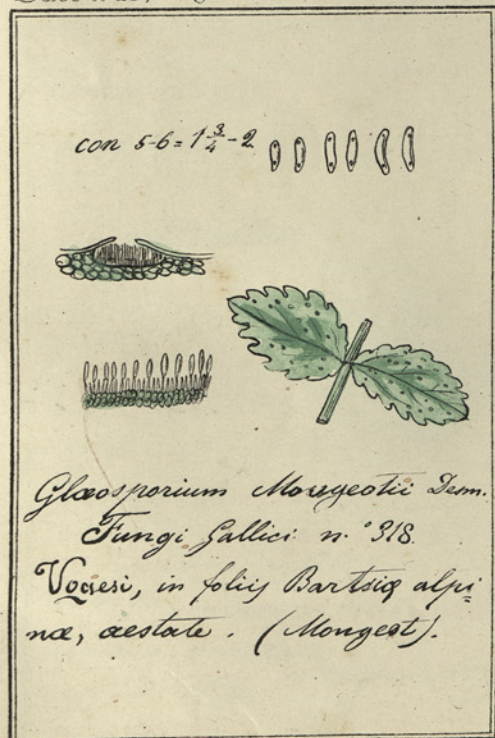 con 5-6 = 1 3/4 - 2
Glœosporium Mougeotii Desm.
Fungi Gallici n.° 318.
Vogesi, in foliis Bartsiæ alpi=
næ, aestate. (Mougeot).